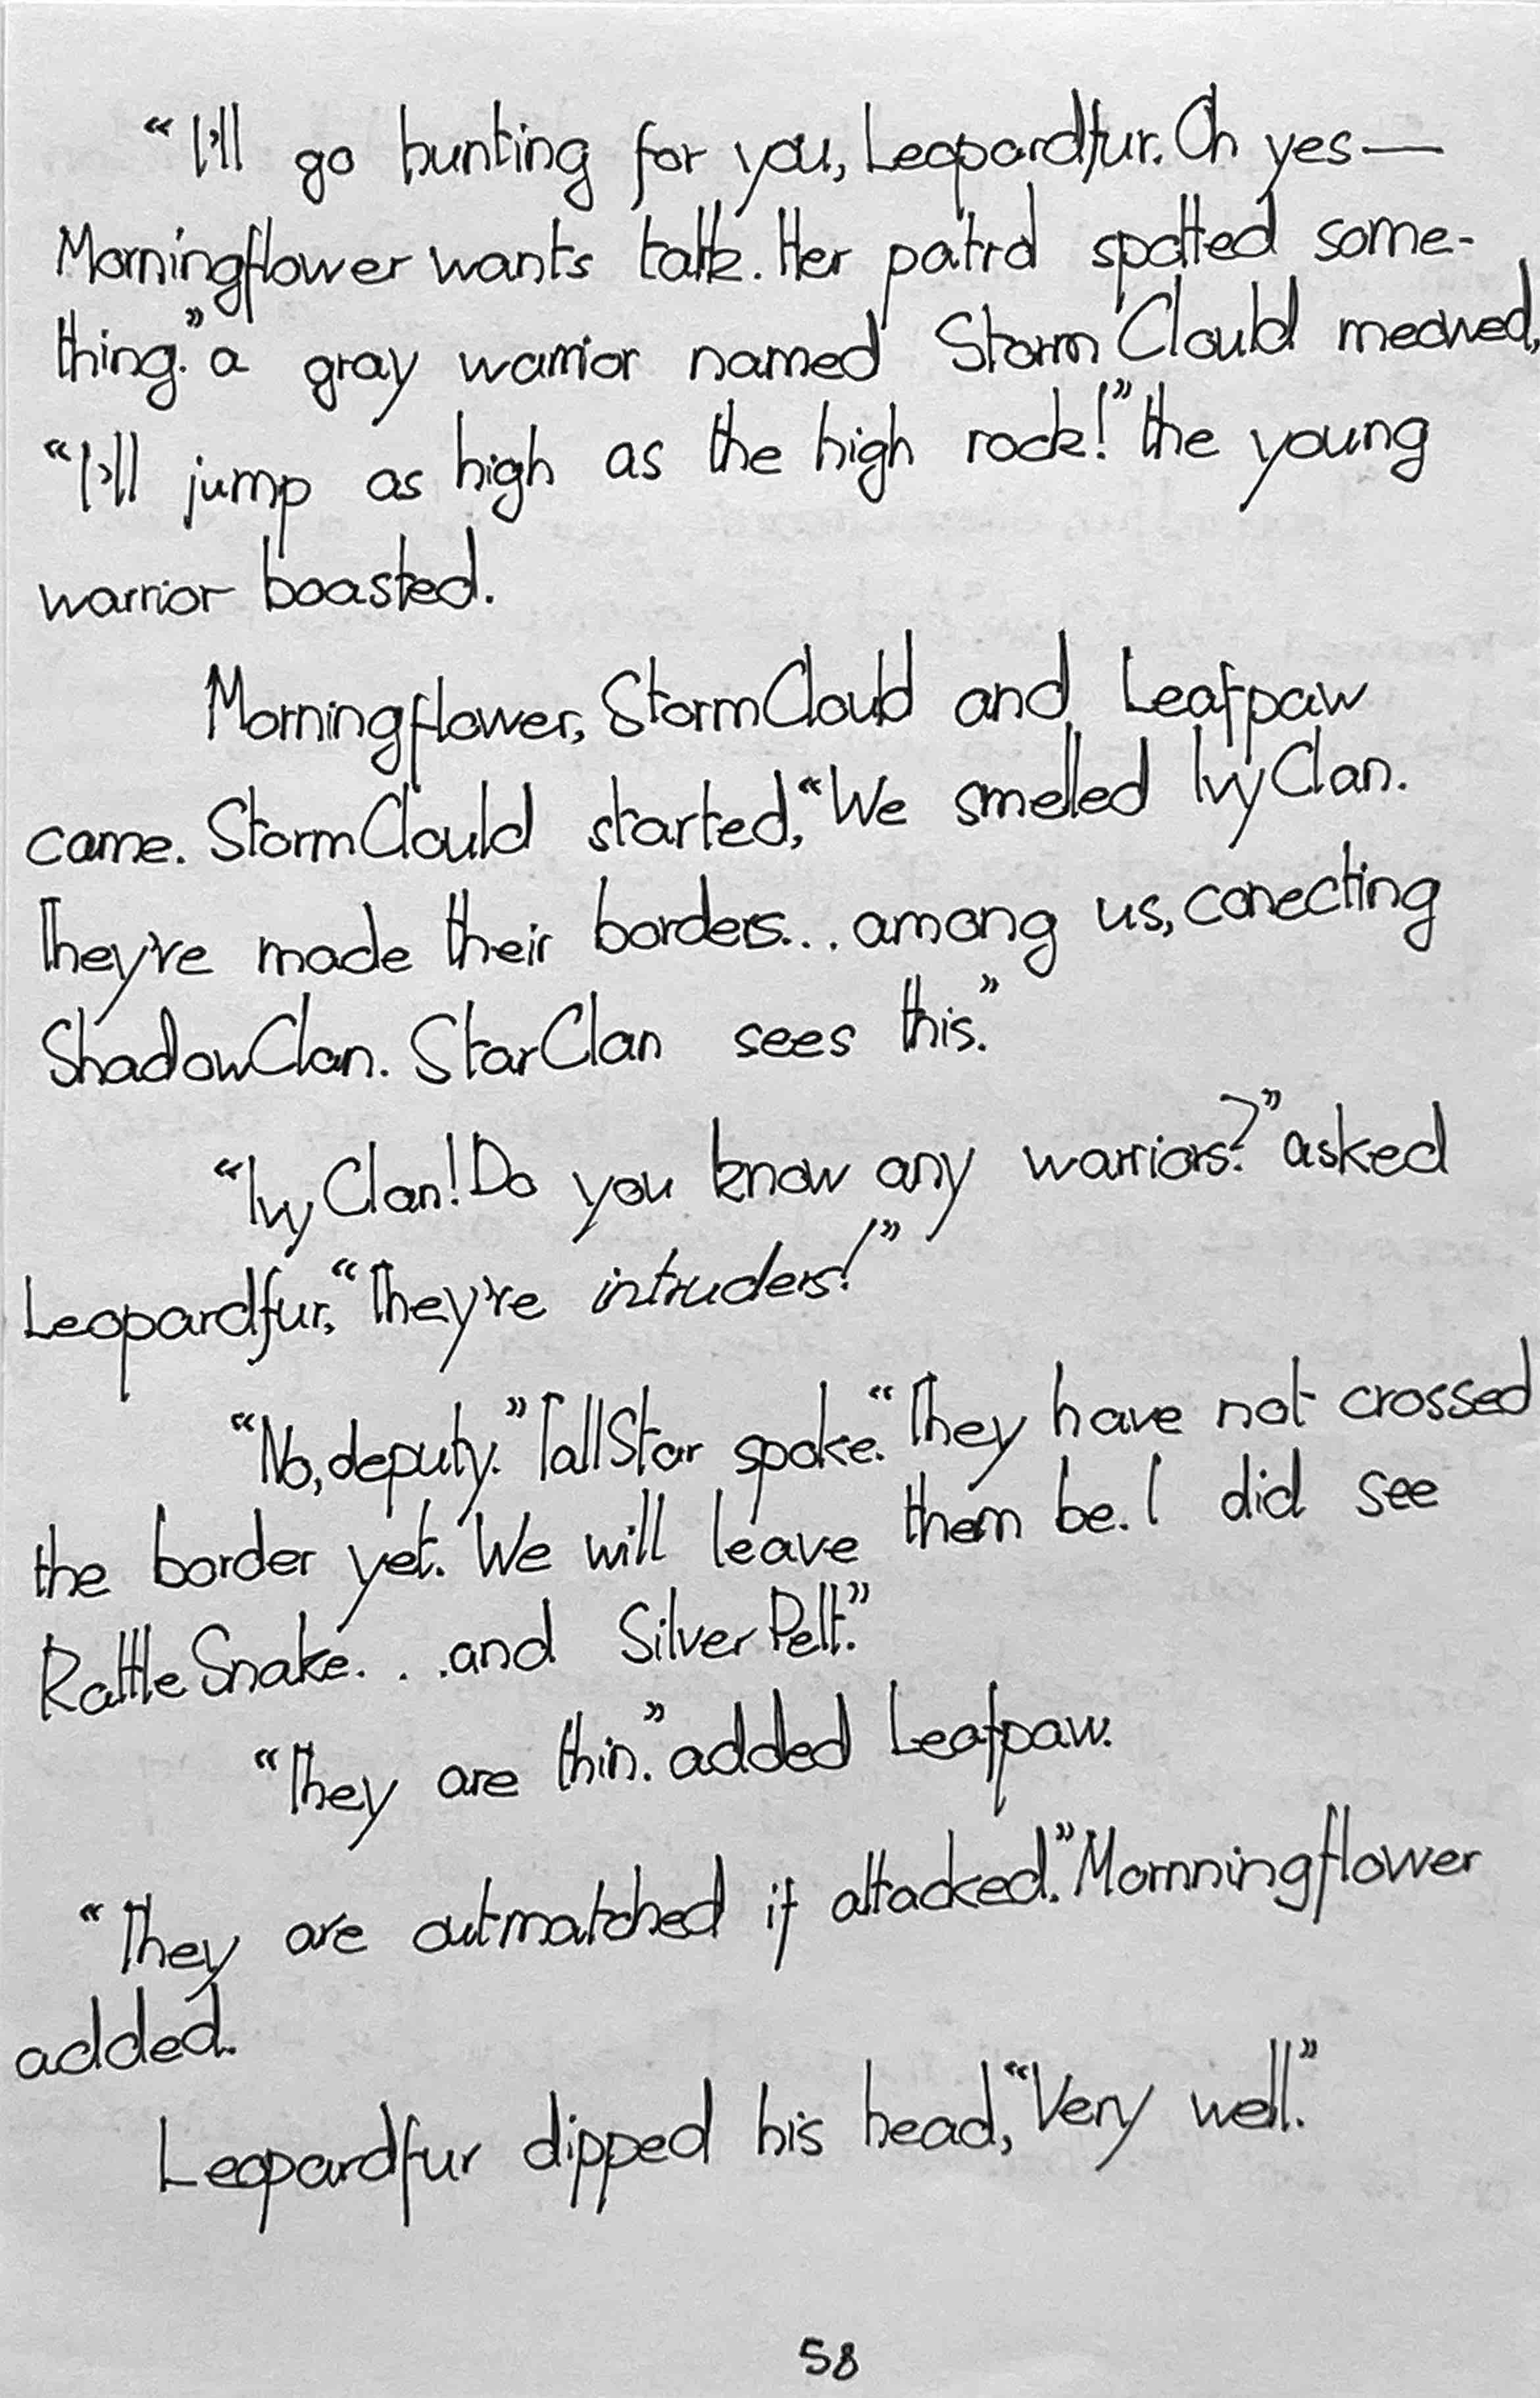 “I'll go hunting for you, Leopardfur. Oh yes—
Morningflower wants talk. Her patrol spotted some-
thing.” a gray warrior named StormClould meowed,
“I'll jump as high as the high rock!” the young
warrior boasted.
Morningflower, StormClould and Leafpaw
came. StormClould started, “We smelled IvyClan.
They're made their borders... among us, conecting
ShadowClan. StarClan sees this.”
“IvyClan! Do you know any warriors?” asked
Leopardfur, “They're intruders!”
“No, deputy.” TallStar spoke. “They have not crossed
the border yet. We will leave them be. I did see
RattleSnake. . .and SilverPelt.”
“They are thin.” added Leafpaw.
“They are outmatched if attacked.” Mornningflower
added.
Leopardfur dipped his head, “Very well.”
58